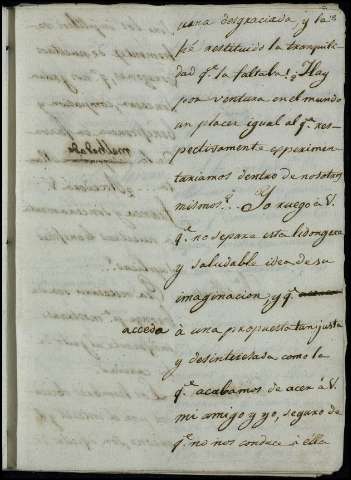 una desgraciada, y la
fué restituido la tranquili-
dad q.e la faltaba! ¿Hay
por ventura en el mundo
un placer igual al q.e res-
pectivamente experimen-
tariamos dentro de nosotros
mismos? Yo ruego à V.
q.e no separe esta lisongera
y saludable idea de su
imaginacion, y q.e
acceda à una propuesta tan justa
y desinteresada como la
q.e acabamos de acer à V.
mi amigo y yo, seguro de
q.e no nos conduce à ella